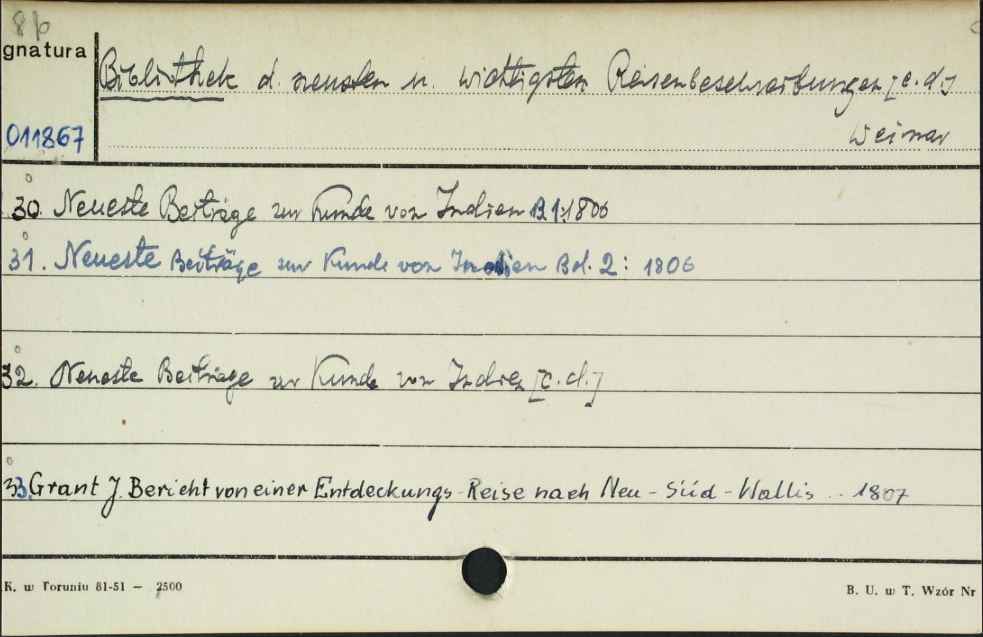 8 b
gnatura
Bibliothek d. neusten u. wichtigsten Reisenbeschreibungen [c.d.]
011867
Weimar
30. Neueste Beiträge zur Kunde von Indien B.1: 1806
31. Neueste Beiträge zur Kunde von Indien Bd. 2: 1806
32. Neueste Beiträge zur Kunde von Indien [c.d.]
33. Grant J. Bericht von einer Entdeckungs-Reise nach Neu-Süd-Wallis .. 1807
K. w Toruniu 81-51 — 2500
B. U. w T. Wzór Nr